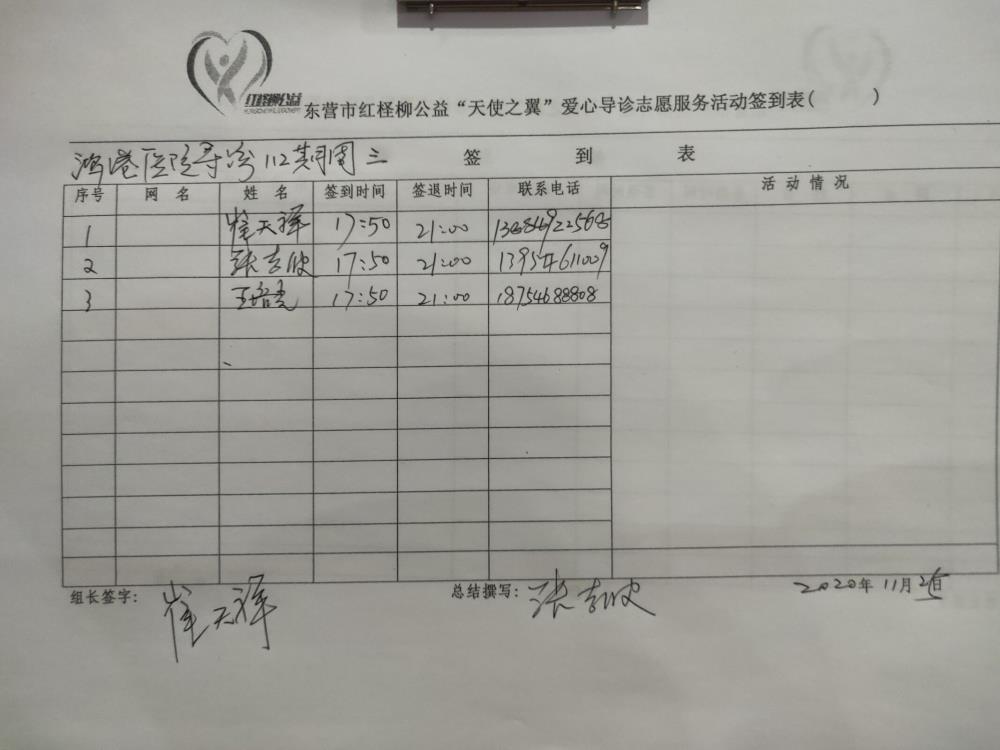 红柽柳公益
东营市红柽柳公益“天使之翼”爱心导诊志愿服务活动签到表( )
鸿港医院导诊112期周三 签 到 表
序号 网 名 姓 名 签到时间 签退时间 联系电话 活 动 情 况
1 崔天祥 17:50 21:00
2 张志波 17:50 21:00 13954611009
3 17:50 21:00 18754688808
组长签字: 崔天祥 总结撰写: 张志波 2020年 11月 日